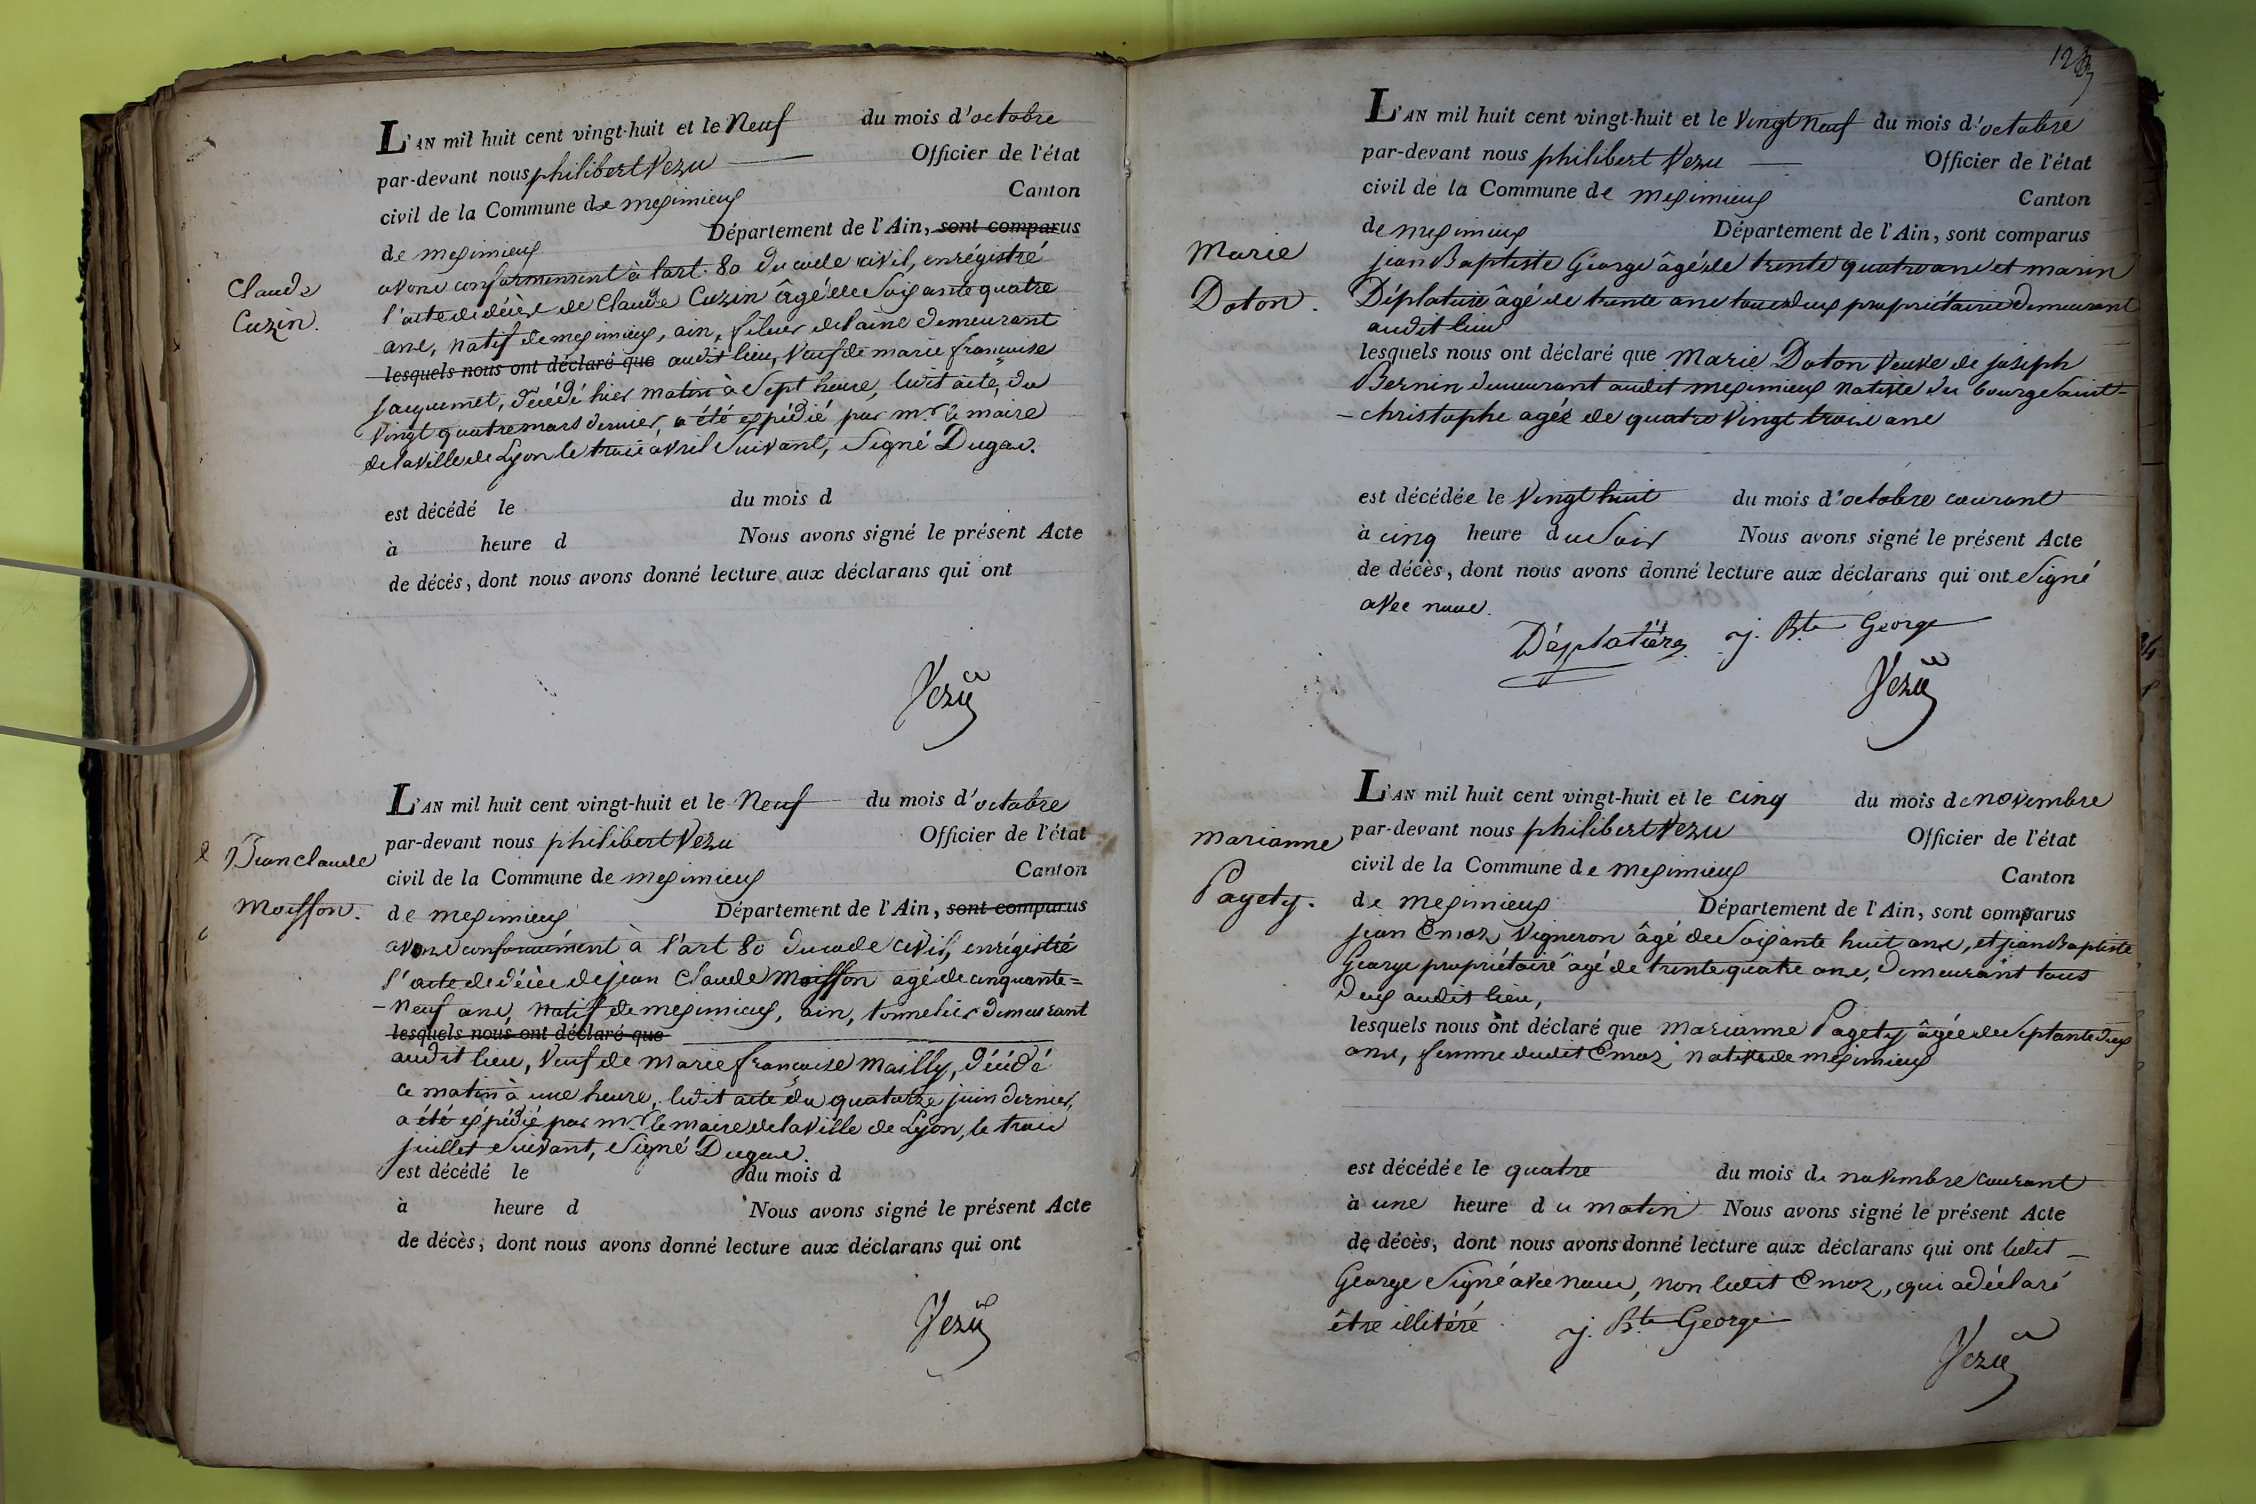 L'AN mil huit cent vingt-huit et le Neuf du mois d'octobre
par-devant nous philibert Vezu Officier de l'état
civil de la Commune de meximieux Canton
de meximieux Département de l'Ain, sont comparus
avons conformément à l'art. 80 du code civil, enrégistré
l'acte de décès de Claude Cuzin âgé de Soixante quatre
ans, natif de meximieux, ain, fileur de laine demeurant
lesquels nous ont déclaré que audit lieu, Veuf de marie françoise
Jacquemet, décédé hier matin à Sept heure, ledit acte, du
Vingt quatre mars dernier, a été expédié par mr. le maire
de la ville de Lyon le trois avril Suivant, Signé Dugas.
Claude
Cuzin.
est décédé le du mois d
à heure d Nous avons signé le présent Acte
de décès, dont nous avons donné lecture aux déclarans qui ont
Vezu
L'AN mil huit cent vingt-huit et le Neuf du mois d'octobre
par-devant nous philibert Vezu Officier de l'état
civil de la Commune de meximieux Canton
de meximieux Département de l'Ain, sont comparus
avons conformément à l'art 80 du code civil, enrégistré
l'acte de décès de jean Claude Moisson agé de cinquante=
-Neuf ans, natif de meximieux, ain, tonnelier demeurant
lesquels nous ont déclaré que
audit lieu, Veuf de Marie françoise Mailly, décédé
ce matin à une heure, ledit acte du quatorze juin dernier,
a été expédié par mr. le maire de la Ville de Lyon, le trois
juillet Suivant, Signé Dugas.
Jean claude
Moisson.
est décédé le du mois d
à heure d Nous avons signé le présent Acte
de décès, dont nous avons donné lecture aux déclarans qui ont
Vezu
L'AN mil huit cent vingt-huit et le Vingt neuf du mois d'octobre
par-devant nous philibert Vezu Officier de l'état
civil de la Commune de meximieux Canton
de meximieux Département de l'Ain, sont comparus
jean Baptiste George âgé de trente quatre ans et marin
Déplature âgé de trente ans tous deux propriétaires demeurant
audit lieu
lesquels nous ont déclaré que Marie Doton Veuve de joseph
Bernin demeurant audit meximieux native du bourg Saint-
-christophe agée de quatre Vingt trois ans
Marie
Doton.
est décédée le Vingt huit du mois d'octobre courant
à cinq heure du Soir Nous avons signé le présent Acte
de décès, dont nous avons donné lecture aux déclarans qui ont Signé
avec nous.
Déplatière j. Bte George
Vezu
L'AN mil huit cent vingt-huit et le cinq du mois de novembre
par-devant nous philibert Vezu Officier de l'état
civil de la Commune de meximieux Canton
de meximieux Département de l'Ain, sont comparus
jean Emoz Vigneron âgé de Soixante huit ans, et jean Baptiste
George propriétaire âgé de trente quatre ans, demeurant tous
deux audit lieu,
lesquels nous ont déclaré que Marianne Pagety âgée de Septante deux
ans, femme dudit Emoz native de meximieux
Marianne
Pagety.
est décédée le quatre du mois de novembre courant
à une heure du matin Nous avons signé le présent Acte
de décès, dont nous avons donné lecture aux déclarans qui ont ledit
George Signé avec nous, non ledit Emoz, qui a déclaré
être illitéré
j. Bte George
Vezu